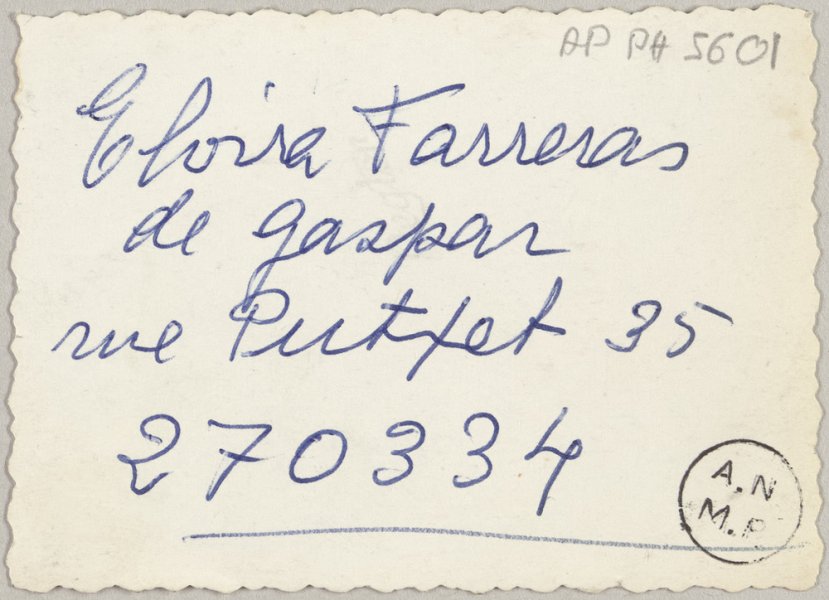 AP PH 5601
Eloira Farreras
de gaspar
rue Putxet 35
270334
A.N
M.P.